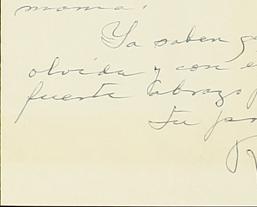 mamá.
Ya saben q
olvida y con e
fuerte abrazo
tu